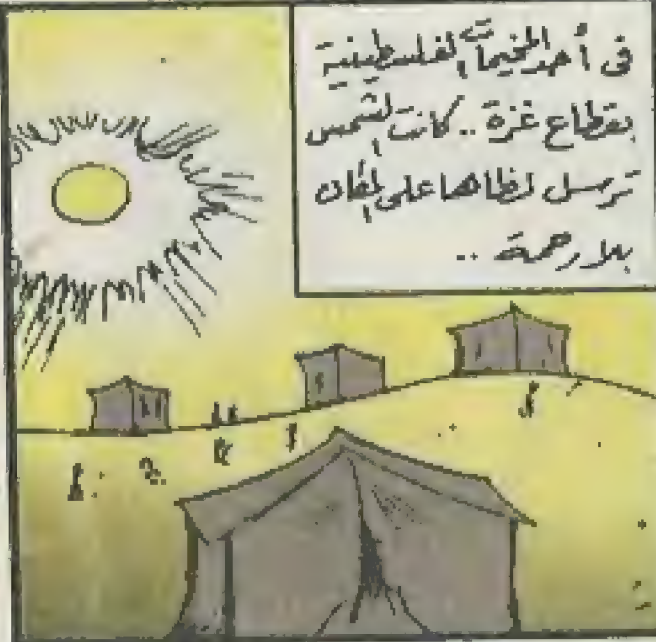 فى أحد المخيمات الفلسطينية
بقطاع غزة .. كانت الشمس
ترسل لظاها على المكان
بلا رحمة ..